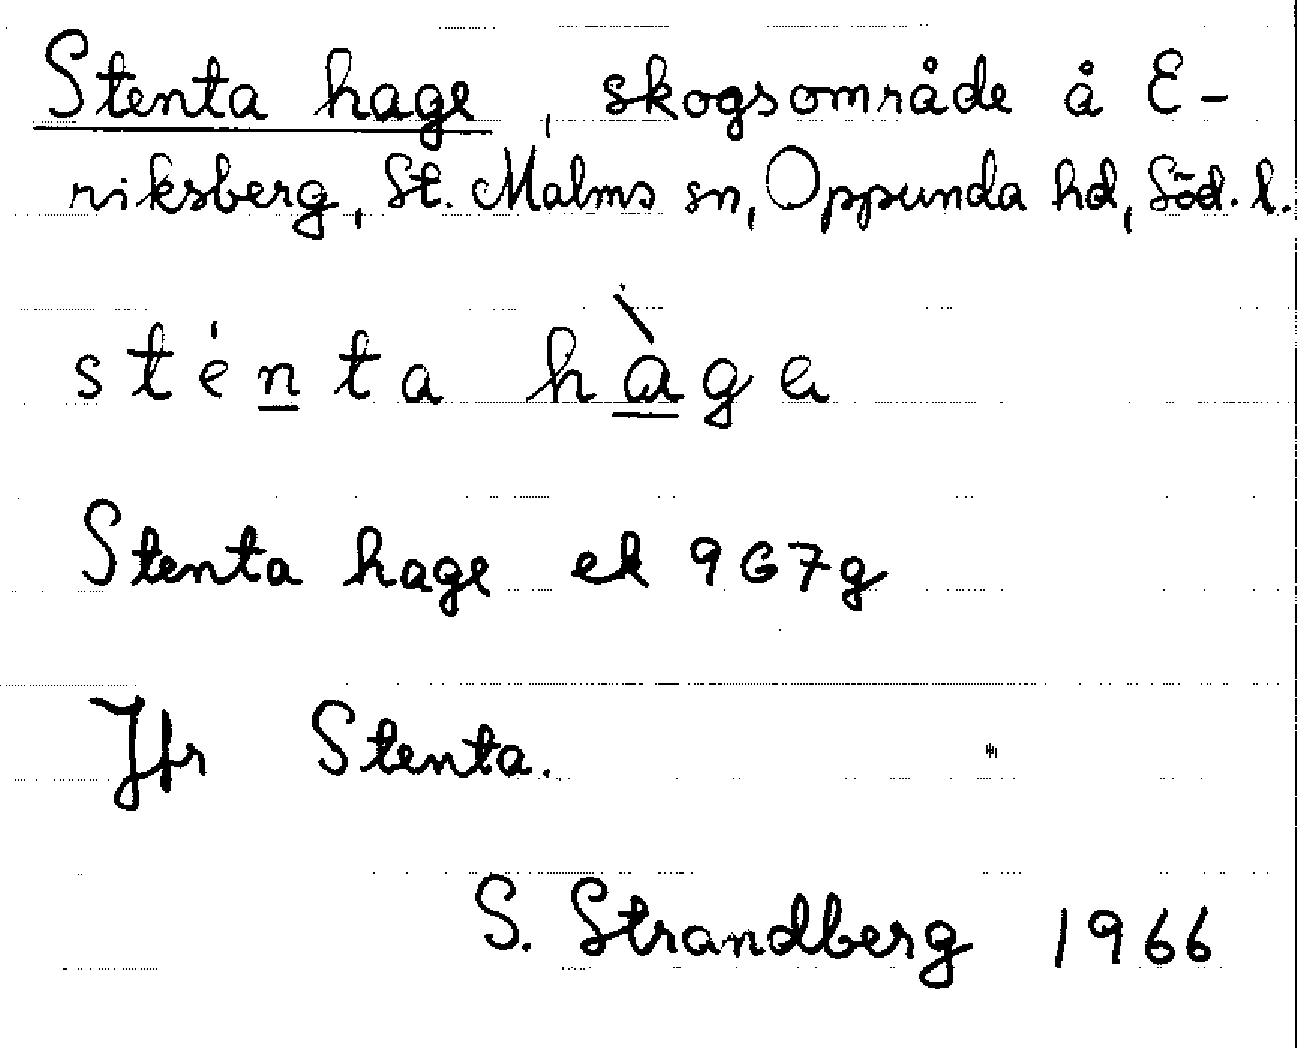 Stenta hage, skogsområde å E-
riksberg, St. Malms sn, Oppunda hd, Söd. l.
sténta hàge
Stenta hage ek 967g
Jfr Stenta.
S. Strandberg 1966